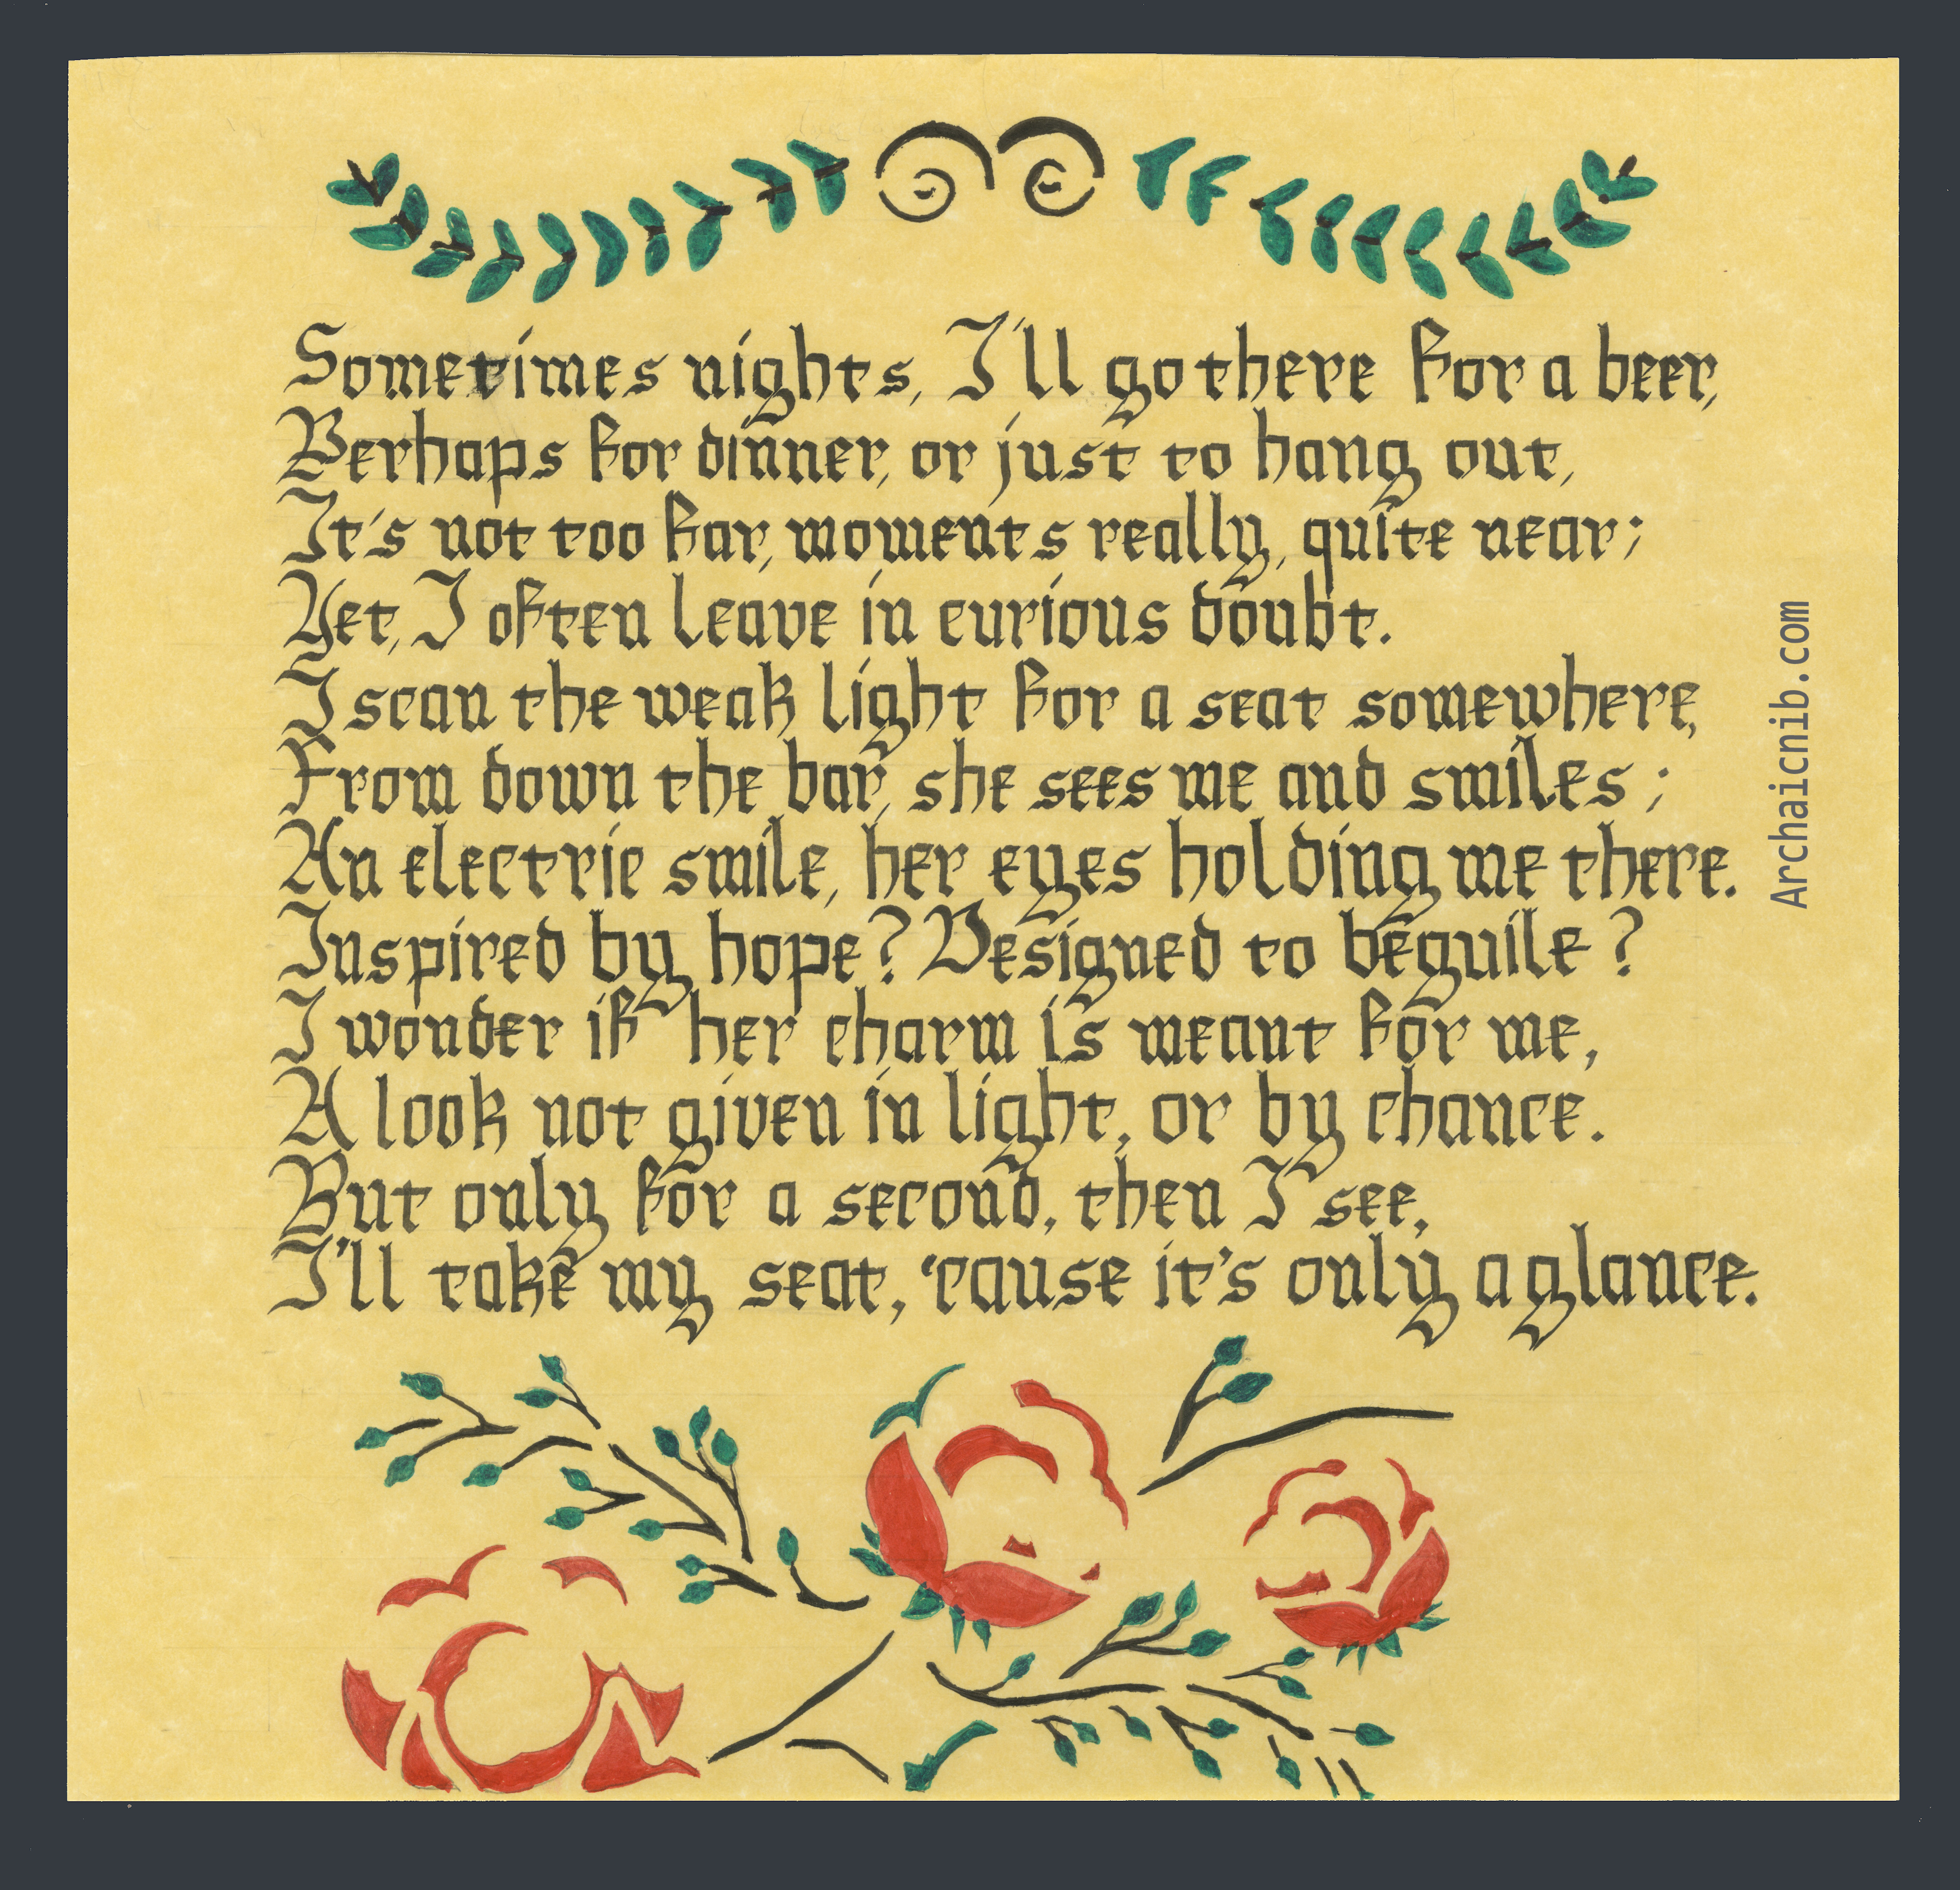 Sometimes nights, I'll go there for a beer,
Perhaps for dinner, or just to hang out,
It's not too far, moments really, quite near;
Yet, I often leave in curious doubt.
I scan the weak light for a seat somewhere,
From down the bar, she sees me and smiles;
An electric smile, her eyes holding me there.
Inspired by hope? Designed to beguile?
I wonder if her charm is meant for me,
A look not given in light, or by chance.
But only for a second, then I see,
I'll take my seat, 'cause it's only a glance.
Archaicnib.com